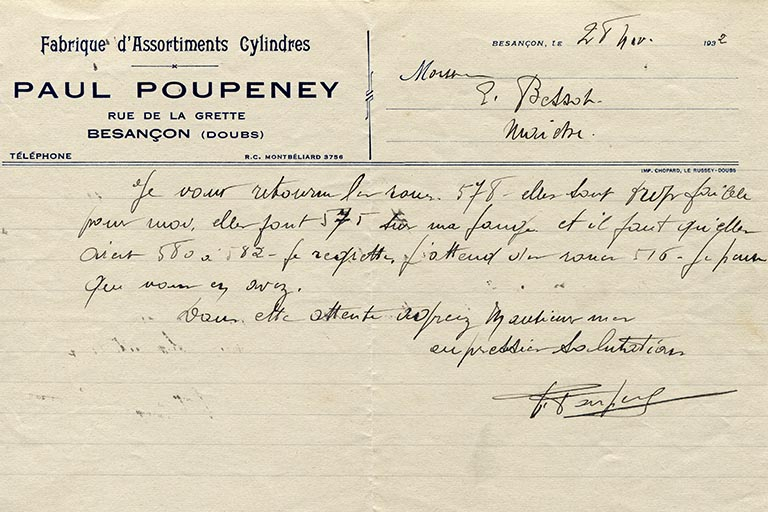 Fabrique d'Assortiments Cylindres
PAUL POUPENEY
RUE DE LA GRETTE
BESANÇON (DOUBS)
TÉLÉPHONE
R.C. MONTBÉLIARD 3756
BESANÇON, LE 28 Nov. 1932
Monsieur
Bessot
IMP. CHOPARD, LE RUSSEY-DOUBS
Je vous retourne les roues 578 - elles sont trop faibles
pour moi, elles font 575 sur ma jauge et il faut qu'elles
aient 580 à 582 - Je regrette, j'attend des roues 516 - Je pense
que vous en avez.
Dans cette attente Monsieur mes
salutations